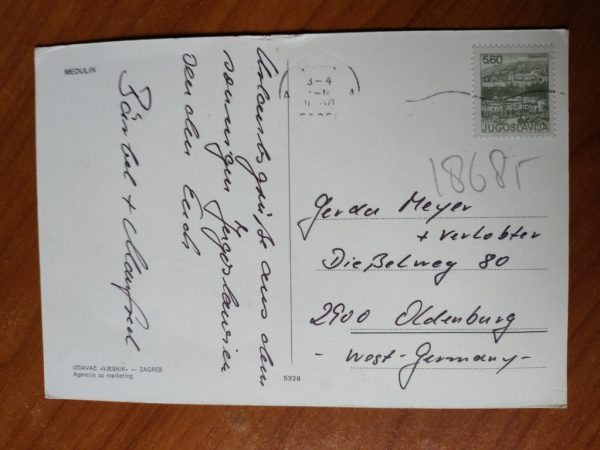 MEDULIN
Urlaubsgrüße aus dem
sonnigen Jugoslawien
senden Euch
Bärbel + Manfred
IZDAVAČ »VJESNIK« — ZAGREB
Agencija za marketing
5328
3-4
5.60
JUGOSLAVIJA
18685
Gerda Meyer
+ Verlobter
Dießelweg 80
2900 Oldenburg
- West-Germany -